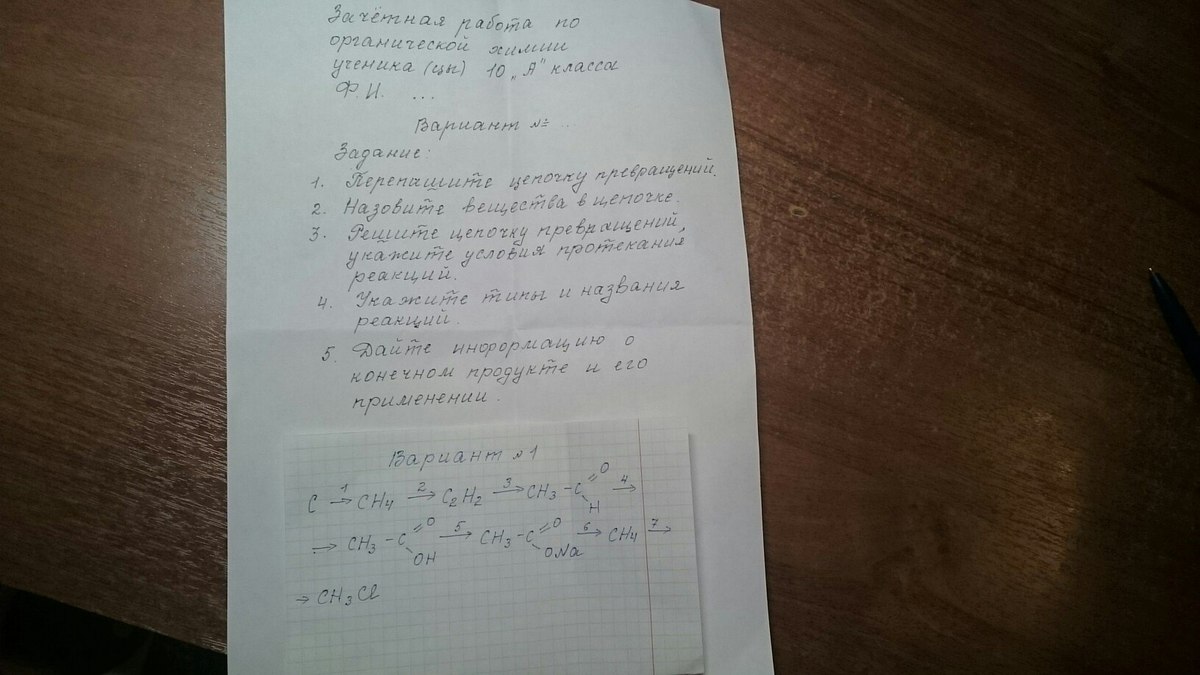 Зачётная работа по
органической химии
ученика (цы) 10 „А" класса
Ф.И. ...
Вариант № ...
Задание:
1. Перепишите цепочку превращений.
2. Назовите вещества в цепочке.
3. Решите цепочку превращений,
укажите условия протекания
реакций.
4. Укажите типы и названия
реакций.
5. Дайте информацию о
конечном продукте и его
применении.
Вариант №1
C →1 CH4 →2 C2H2 →3 CH3-C(=O)H →4
→ CH3-C(=O)OH →5 CH3-C(=O)ONa →6 CH4 →7
→ CH3Cl